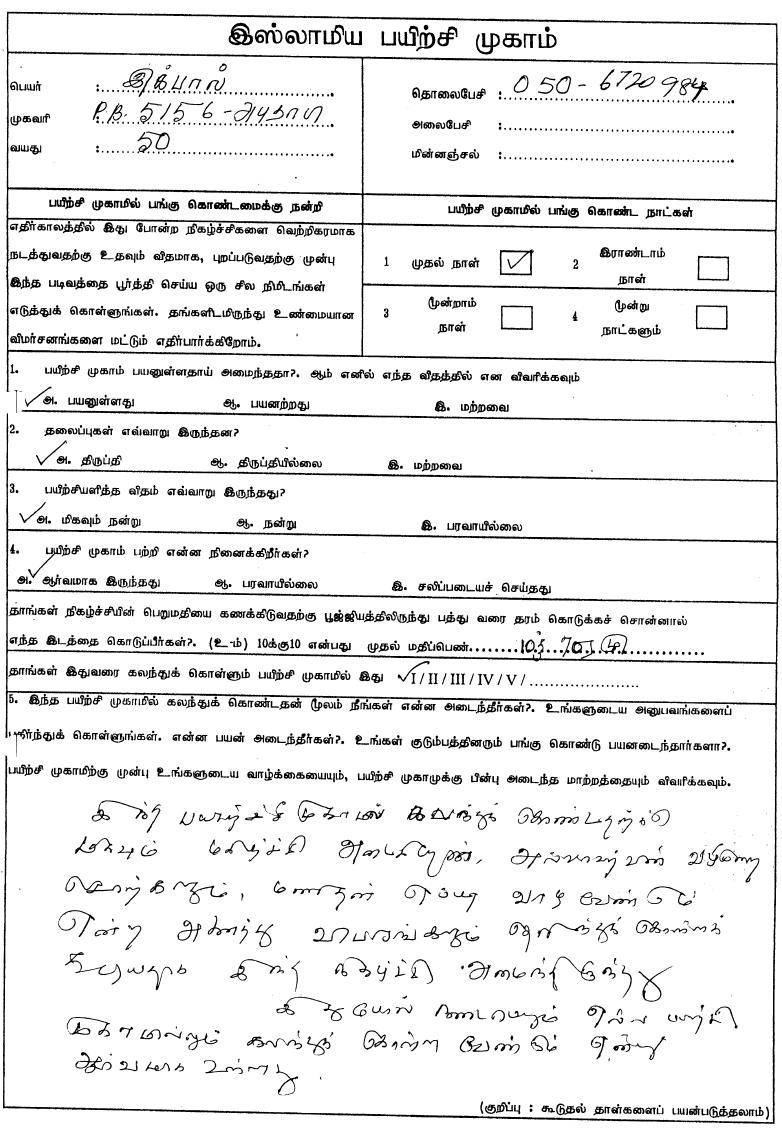 இஸ்லாமிய பயிற்சி முகாம்
பெயர் : இக்பால்
முகவரி : P.B. 5156 - அபுதாபி
வயது : 50
தொலைபேசி : 050-6720984
அலைபேசி :
மின்னஞ்சல் :
பயிற்சி முகாமில் பங்கு கொண்டமைக்கு நன்றி
எதிர்காலத்தில் இது போன்ற நிகழ்ச்சிகளை வெற்றிகரமாக
நடத்துவதற்கு உதவும் விதமாக, புறப்படுவதற்கு முன்பு
இந்த படிவத்தை பூர்த்தி செய்ய ஒரு சில நிமிடங்கள்
எடுத்துக் கொள்ளுங்கள். தங்களிடமிருந்து உண்மையான
விமர்சனங்களை மட்டும் எதிர்பார்க்கிறோம்.
பயிற்சி முகாமில் பங்கு கொண்ட நாட்கள்
1 முதல் நாள் ✓ 2 இராண்டாம் நாள்
3 மூன்றாம் நாள் 4 மூன்று நாட்களும்
1. பயிற்சி முகாம் பயனுள்ளதாய் அமைந்ததா?. ஆம் எனில் எந்த விதத்தில் என விவரிக்கவும்
✓ அ. பயனுள்ளது ஆ. பயனற்றது இ. மற்றவை
2. தலைப்புகள் எவ்வாறு இருந்தன?
✓ அ. திருப்தி ஆ. திருப்தியில்லை இ. மற்றவை
3. பயிற்சியளித்த விதம் எவ்வாறு இருந்தது?
✓ அ. மிகவும் நன்று ஆ. நன்று இ. பரவாயில்லை
4. பயிற்சி முகாம் பற்றி என்ன நினைக்கிறீர்கள்?
அ. ✓ ஆர்வமாக இருந்தது ஆ. பரவாயில்லை இ. சலிப்படையச் செய்தது
தாங்கள் நிகழ்ச்சியின் பெறுமதியை கணக்கிடுவதற்கு பூஜ்ஜியத்திலிருந்து பத்து வரை தரம் கொடுக்கச் சொன்னால்
எந்த இடத்தை கொடுப்பீர்கள்?. (உ-ம்) 10க்கு10 என்பது முதல் மதிப்பெண்
தாங்கள் இதுவரை கலந்துக் கொள்ளும் பயிற்சி முகாமில் இது ✓ I / II / III / IV / V /
5. இந்த பயிற்சி முகாமில் கலந்துக் கொண்டதன் மூலம் நீங்கள் என்ன அடைந்தீர்கள்?. உங்களுடைய அனுபவங்களைப்
பகிர்ந்துக் கொள்ளுங்கள். என்ன பயன் அடைந்தீர்கள்?. உங்கள் குடும்பத்தினரும் பங்கு கொண்டு பயனடைந்தார்களா?.
பயிற்சி முகாமிற்கு முன்பு உங்களுடைய வாழ்க்கையையும், பயிற்சி முகாமுக்கு பின்பு அடைந்த மாற்றத்தையும் விவரிக்கவும்.
இந்த பயிற்சி முகாமில் கலந்துக் கொண்டதற்கு
மிகவும் மகிழ்ச்சி அடைகிறேன், அல்லாஹ்வின்
மனிதன் எப்படி வாழ வேண்டும்
என்ற அனைத்து விபரங்களும் தெரிந்துக் கொள்ளக்
கூடியதாக இந்த நிகழ்ச்சி அமைந்திருந்தது
இது போல் நடைபெறும் எல்லா பயிற்சி
முகாமிலும் கலந்துக் கொள்ள வேண்டும் என்று
ஆர்வமாக உள்ளது.
(குறிப்பு : கூடுதல் தாள்களைப் பயன்படுத்தலாம்)